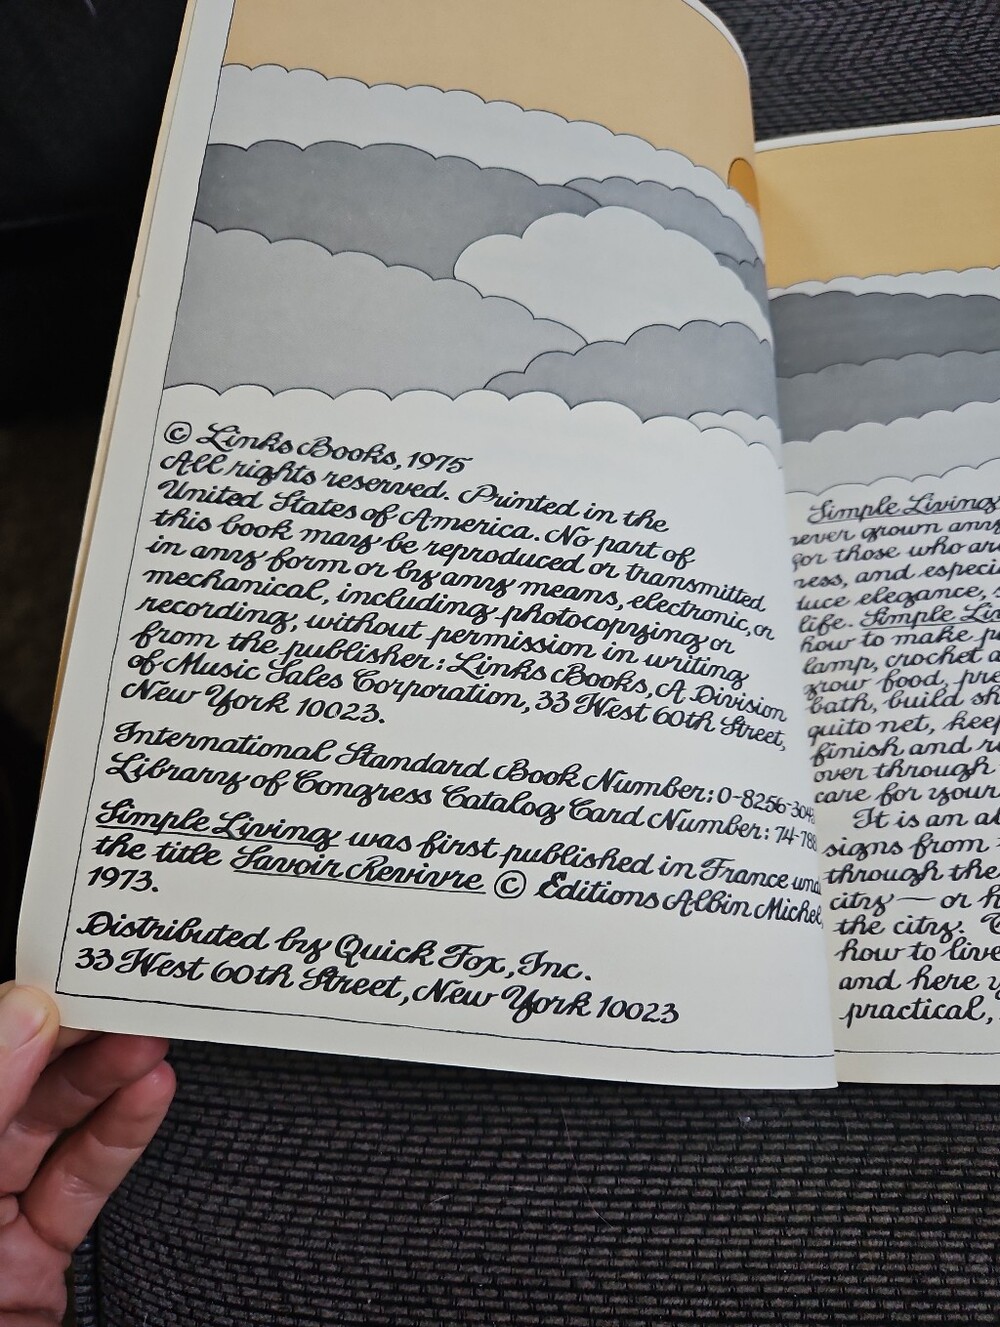 © Links Books, 1975
All rights reserved. Printed in the
United States of America. No part of
this book may be reproduced or transmitted
in any form or by any means, electronic, or
mechanical, including photocopying or
recording, without permission in writing
from the publisher: Links Books, A Division
of Music Sales Corporation, 33 West 60th Street,
New York 10023.
International Standard Book Number: 0-8256-304
Library of Congress Catalog Card Number: 74-788
Simple Living was first published in France und
the title Savoir Revivre © Éditions Albin Michel,
1973.
Distributed by Quick Fox, Inc.
33 West 60th Street, New York 10023
Simple Living
never grown any
for those who are
ness, and especi
duce elegance,
life. Simple Li
how to make p
lamp, crochet a
grow food, pre
bath, build sh
quito net, keep
finish and r
over through
care for your
It is an al
signs from
through the
city — or h
the city.
how to live
and here y
practical,